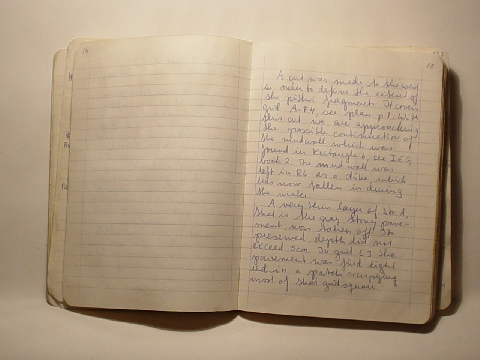 14
15
A cut was made to the west
in order to define the extent of
the pithoi fragments. It covers
grid A-R4, see plan p. 1. With
this cut we are approaching
the possible continuation of
the mudwall which was
found in Rectangle 6, see IEG,
book 2. The mud wall was
left in R6 as a dike, which
has now fallen in during
the winter.
A very thin layer of Str. 1,
that is the gray stony pave-
ment was taken off. Its
preserved depth did not
exceed 5cm. In grid the
pavement was
in a patch occupying
most of that grid square.